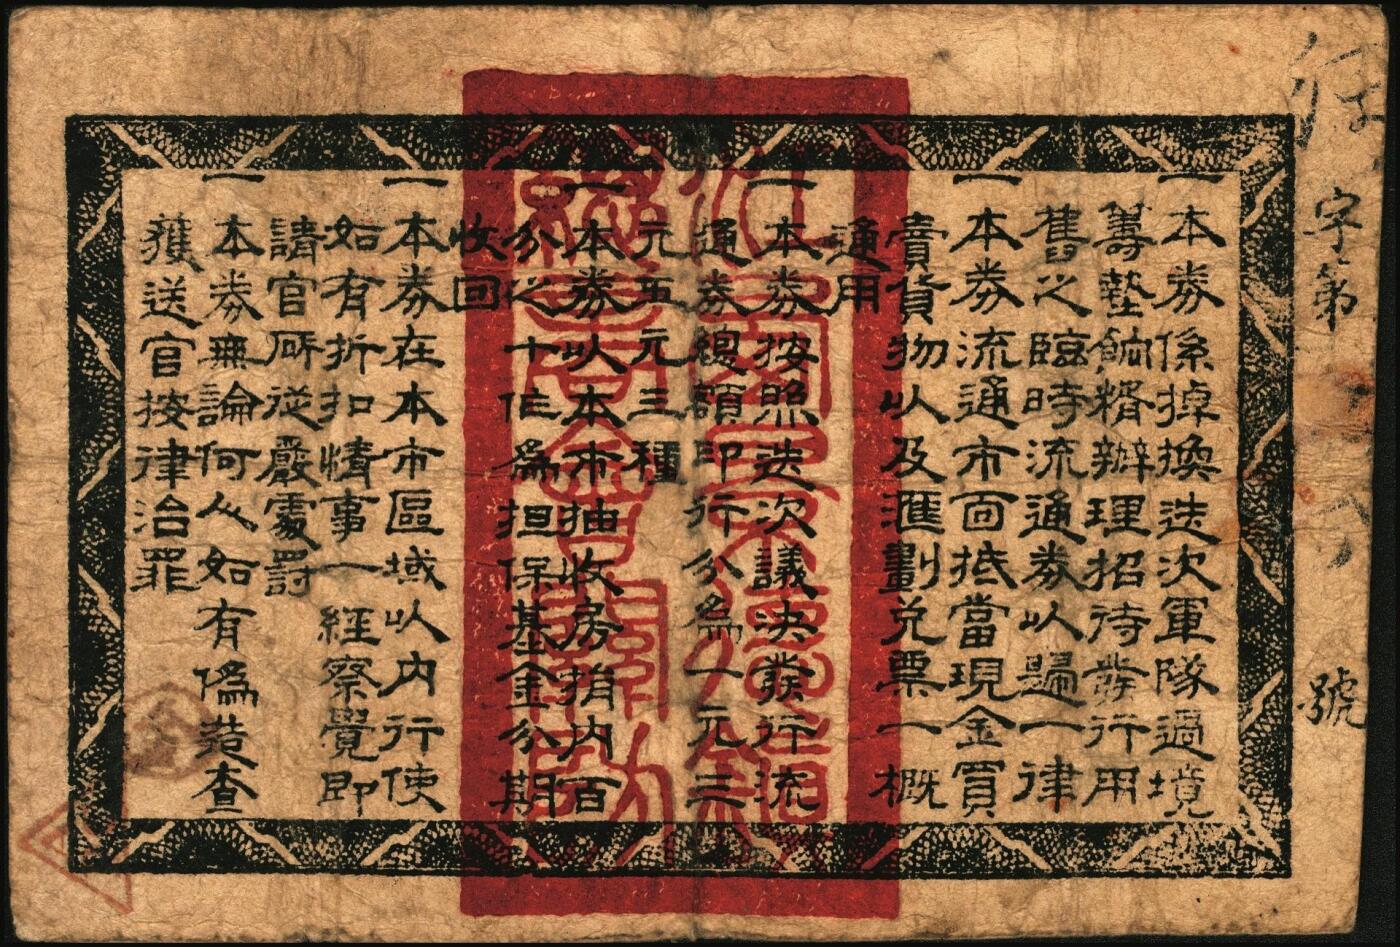 一本券係掉換迭次軍隊過境
籌墊餉糈辦理招待發行用
舊之臨時流通券以歸一律
一本券流通市面抵當現金買
賣貨物以及匯劃兌票一概
通用
一本券按照迭次議決發行流
通券總額印行分為一元三
元五元三種
一本券以本市抽收房捐內百
分之十作為担保基金分期
收回
一本券在本市區域以內行使
如有折扣情事一經察覺即
請官厛從嚴處罸
一本券無論何人如有偽造查
獲送官按律治罪
字第
號
總商會關防